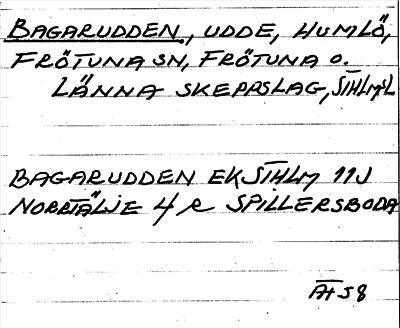 BAGARUDDEN, UDDE, HUMLÖ,
FRÖTUNA SN, FRÖTUNA O.
LÄNNA SKEPPSLAG, STHLMSL
BAGARUDDEN EK STHLM 11J
NORRTÄLJE 4 R SPILLERSBODA
ÄH 58